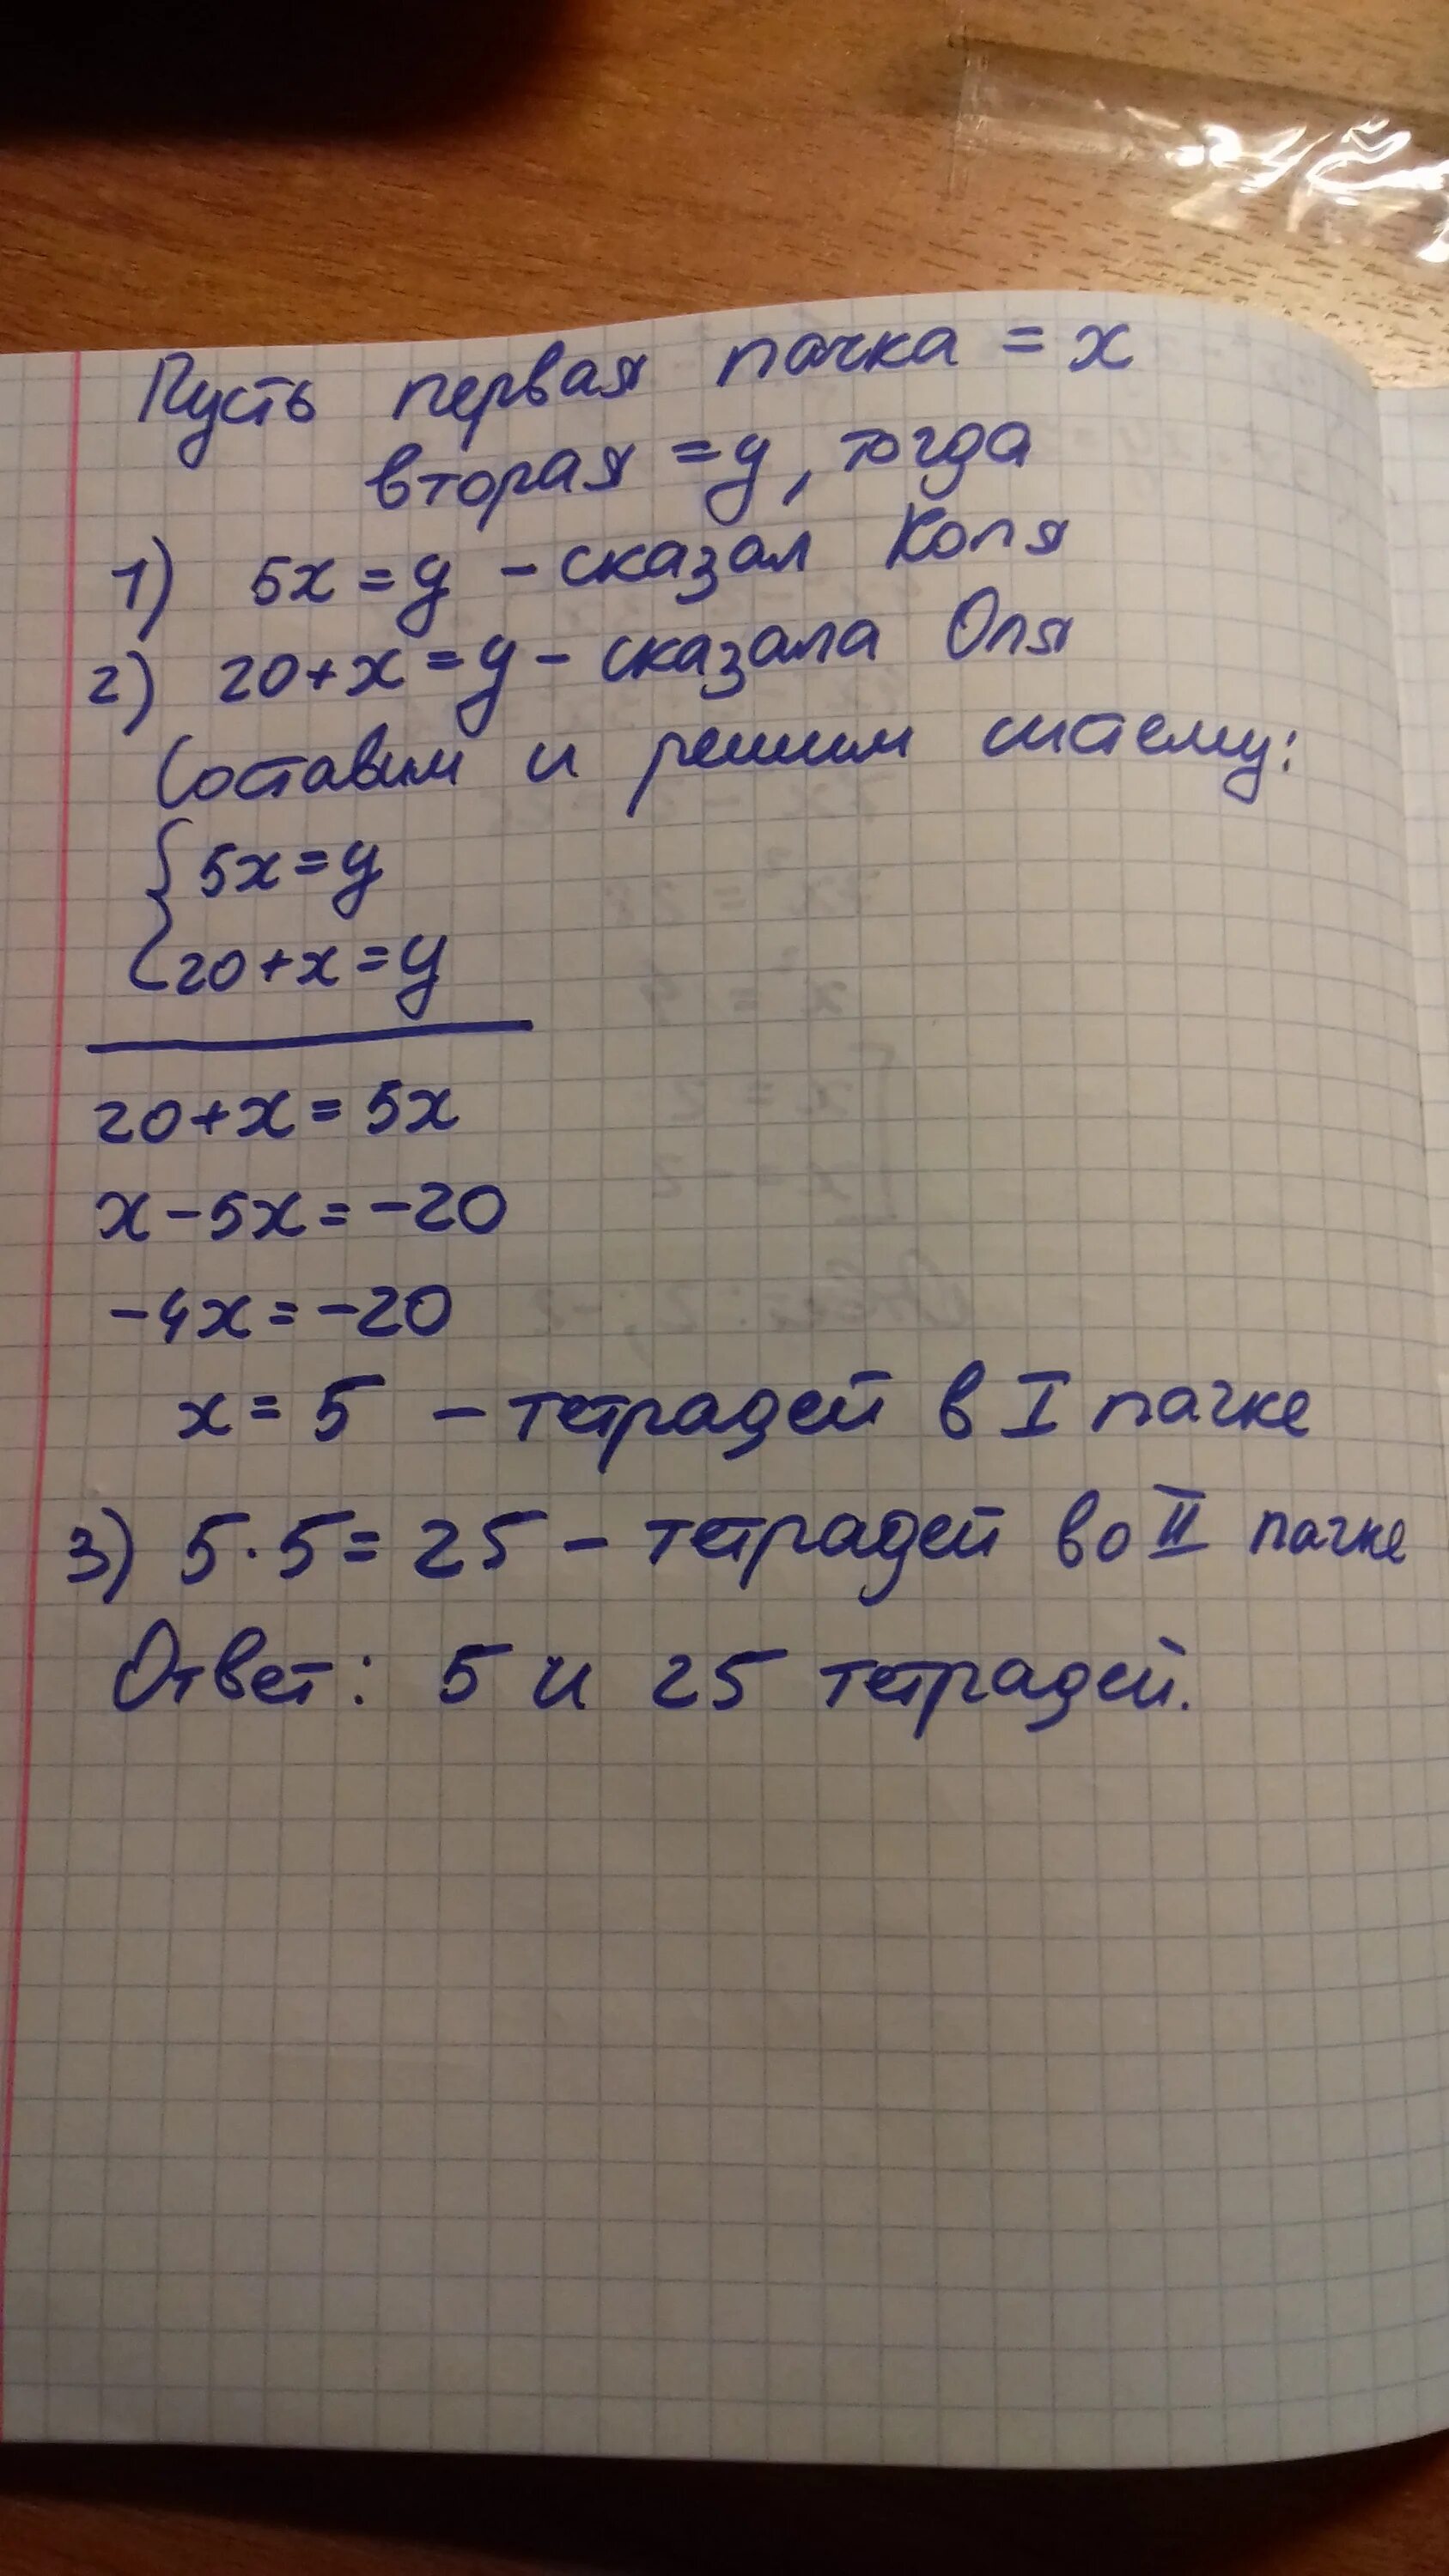 Пусть первая пачка = x
вторая = y, тогда
1) 5x = y - сказал Коля
2) 20+x = y - сказала Оля
Составим и решим систему:
{ 5x = y
20+x = y
20+x = 5x
x-5x = -20
-4x = -20
x = 5 - тетрадей в I пачке
3) 5·5 = 25 - тетрадей во II пачке
Ответ: 5 и 25 тетрадей.